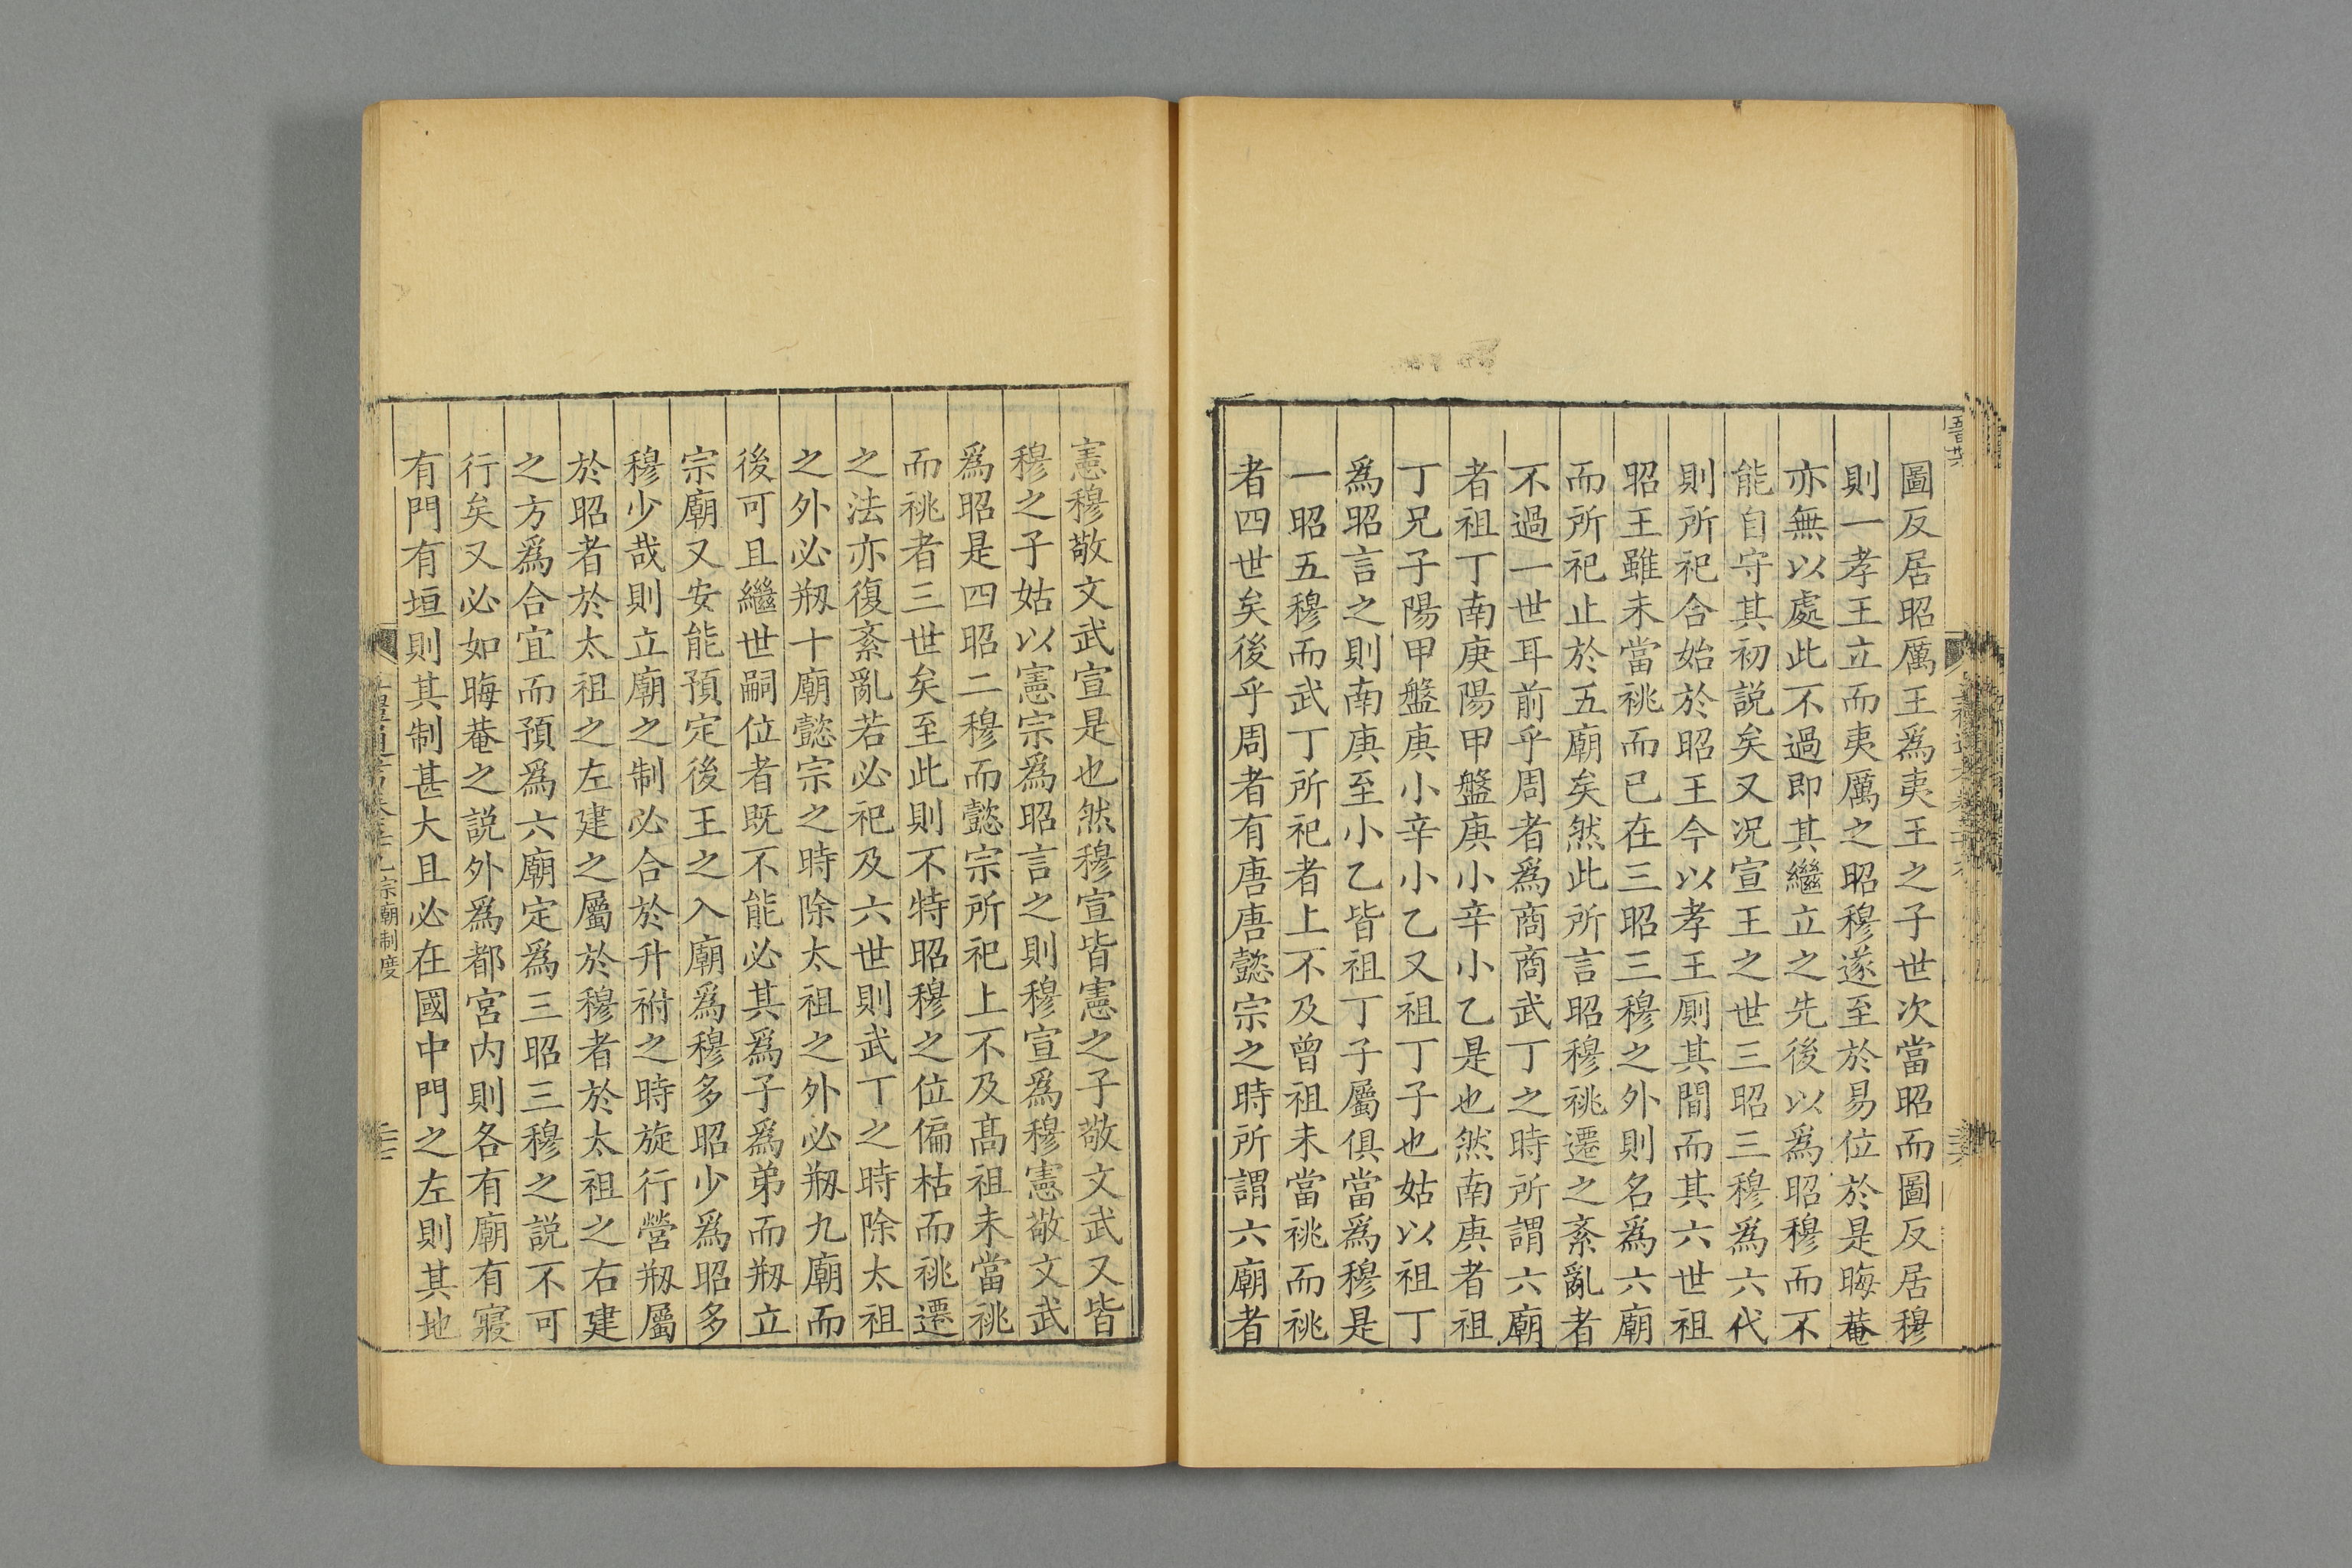 圖反居昭厲王爲夷王之子世次當昭而圖反居穆
則一孝王立而夷厲之昭穆遂至於易位於是晦菴
亦無以處此不過即其繼立之先後以爲昭穆而不
能自守其初説矣又况宣王之世三昭三穆爲六代
則所祀合始於昭王今以孝王厠其間而其六世祖
昭王雖未當祧而已在三昭三穆之外則名爲六廟
而所祀止於五廟矣然此所言昭穆祧遷之紊亂者
不過一世耳前乎周者爲商商武丁之時所謂六廟
者祖丁南庚陽甲盤庚小辛小乙是也然南庚者祖
丁兄子陽甲盤庚小辛小乙又祖丁子也姑以祖丁
爲昭言之則南庚至小乙皆祖丁子屬俱當爲穆是
一昭五穆而武丁所祀者上不及曾祖未當祧而祧
者四世矣後乎周者有唐唐懿宗之時所謂六廟者
憲穆敬文武宣是也然穆宣皆憲之子敬文武又皆
穆之子姑以憲宗爲昭言之則穆宣爲穆憲敬文武
爲昭是四昭二穆而懿宗所祀上不及髙祖未當祧
而祧者三世矣至此則不特昭穆之位偏枯而祧遷
之法亦復紊亂若必祀及六世則武丁之時除太祖
之外必刱十廟懿宗之時除太祖之外必刱九廟而
後可且繼世嗣位者既不能必其爲子爲弟而刱立
宗廟又安能預定後王之入廟爲穆多昭少爲昭多
穆少哉則立廟之制必合於升祔之時旋行營刱屬
於昭者於太祖之左建之屬於穆者於太祖之右建
之方爲合宜而預爲六廟定爲三昭三穆之説不可
行矣又必如晦菴之説外爲都宮内則各有廟有寢
有門有垣則其制甚大且必在國中門之左則其地
宗廟制度